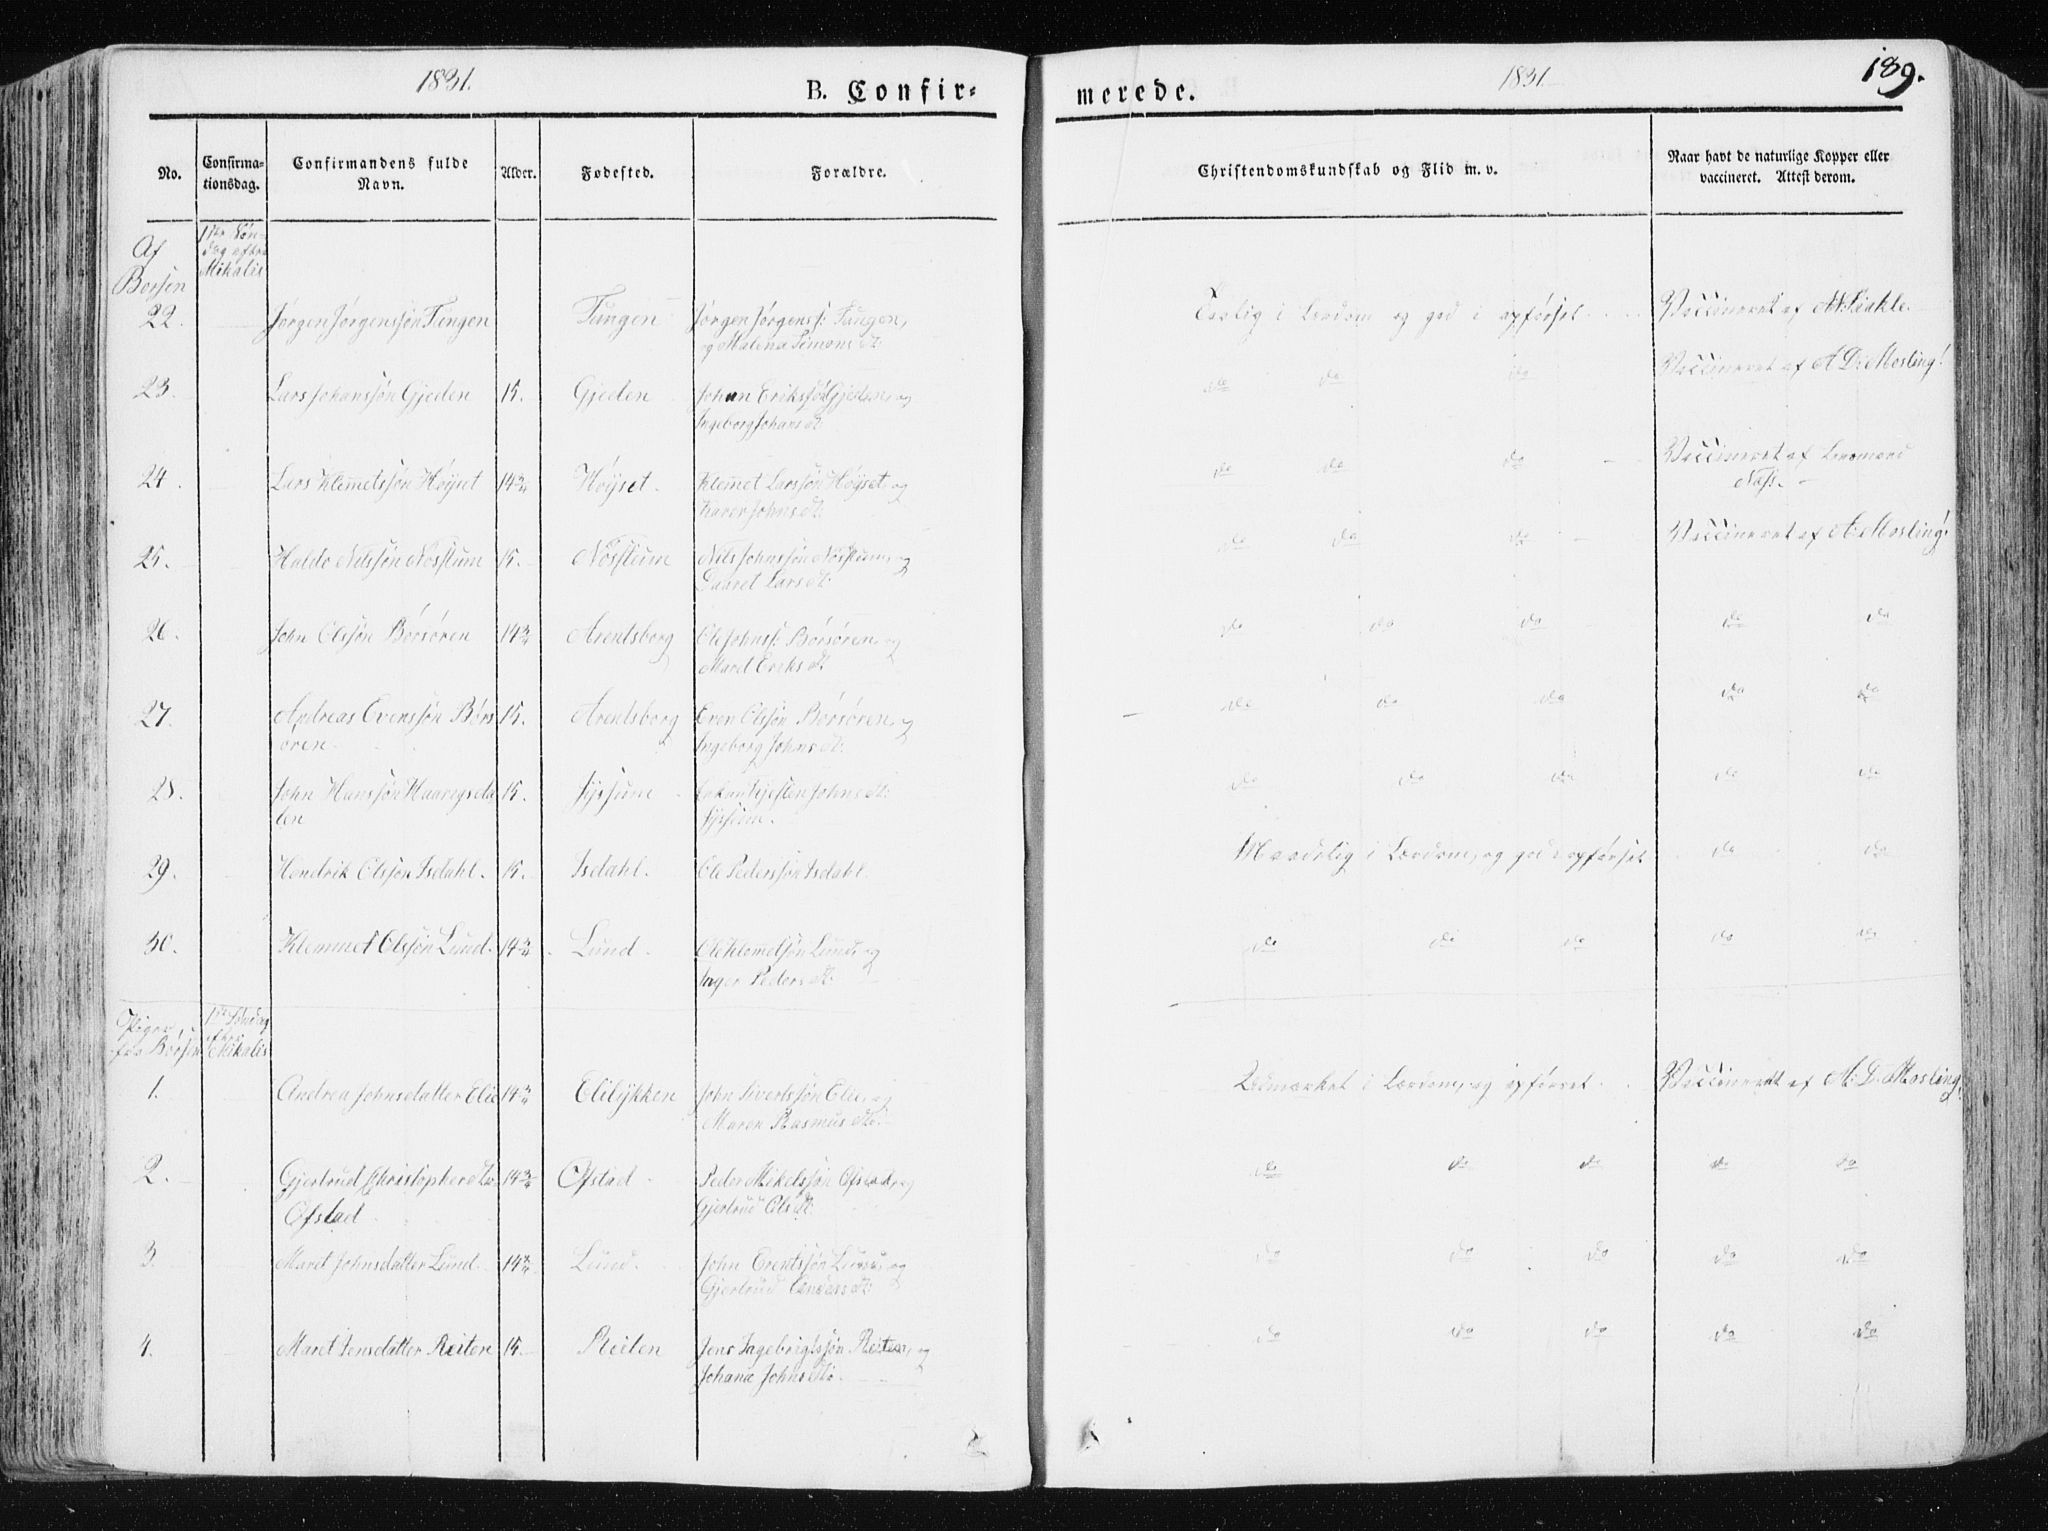 1831.
B. Confir-
merede.
1831.
189.
No.
Confirma-
tionsdag.
Confirmandens fulde
Navn.
Alder.
Fødested.
Forældre.
Christendomskundskab og Flid m. v.
Naar havt de naturlige Kopper eller
vaccineret. Attest derom.
Af
Børsen
1ste Søn-
dag efter
Mikalis
22. Jørgen Jørgenssøn Tungen Tungen Jørgen Jørgenss: Tungen,
og Malena Simons dt:
i Lærdom og god i opførsel Vaccineret af
23. Lars Johanssøn Gjeden 15. Gjeden Johan Erikssøn Gjeden, og
Ingeborg Johans dt:
do do do Vaccineret af A D: Mosling!
24. Lars Klemetssøn Høyset 14 3/4 Høyset. Klemet Larssøn Høyset, og
Karen Johns dt:
do do do Vaccineret af Lensmand
Næss.
25. Haldo Nilssøn Nøsstum 15. Nøsstum Nils Johnssøn Nøsstum, og
Daaret Lars dt:
do do do Vaccineret af A: Mosling!
26. John Olssøn Børsøren 14 3/4 Arentsborg Ole Johnss: Børsøren, og
Maret Eriks dt:
do do do do do
27. Andreas Evenssøn Børs 15. Arentsborg Even Olssøn Børsøren, og
øren Ingeborg Johns dt:
do do do do do
28. John Hanssøn Haarigsda 15. Syssum Enkan Kjesten Johns dt:
len Syssum.
do do do do do
29. Hendrik Olssøn Isdahl. 15. Isdahl. Ole Pederssøn Isdahl
Maadelig i Lærdom, og god opførsel do do
30. Klemmet Olssøn Lund. 14 3/4 Lund Ole Klemetsøn Lund, og
Inger Peders dt:
do do do do do
Piger
fra Børsen
1ste Søndag
efter
Mikalis
1. Andrea Johnsdatter Elie 14 3/4 Elilykken John Sivertssøn Elie, og
Maren Rasmus dt:
Udmærket i Lærdom, og opførsel Vaccineret af A: D. Mosling!
2. Gjertrud Christopher dt: 14 3/4 Ofstad Peder Mikelssøn Ofstad, og
Ofstad Gjertrud Ols dt:
do do do do do
3. Maret Johnsdatter Lund. 14 3/4 Lund. John Erentssøn Lund, og
Gjertrud Anders dt:
do do do do do
4. Maret Jensdatter Reiten 15. Reiten Jens Ingebrigtssøn Reiten, og
Johana Johns dt:
do do do do do